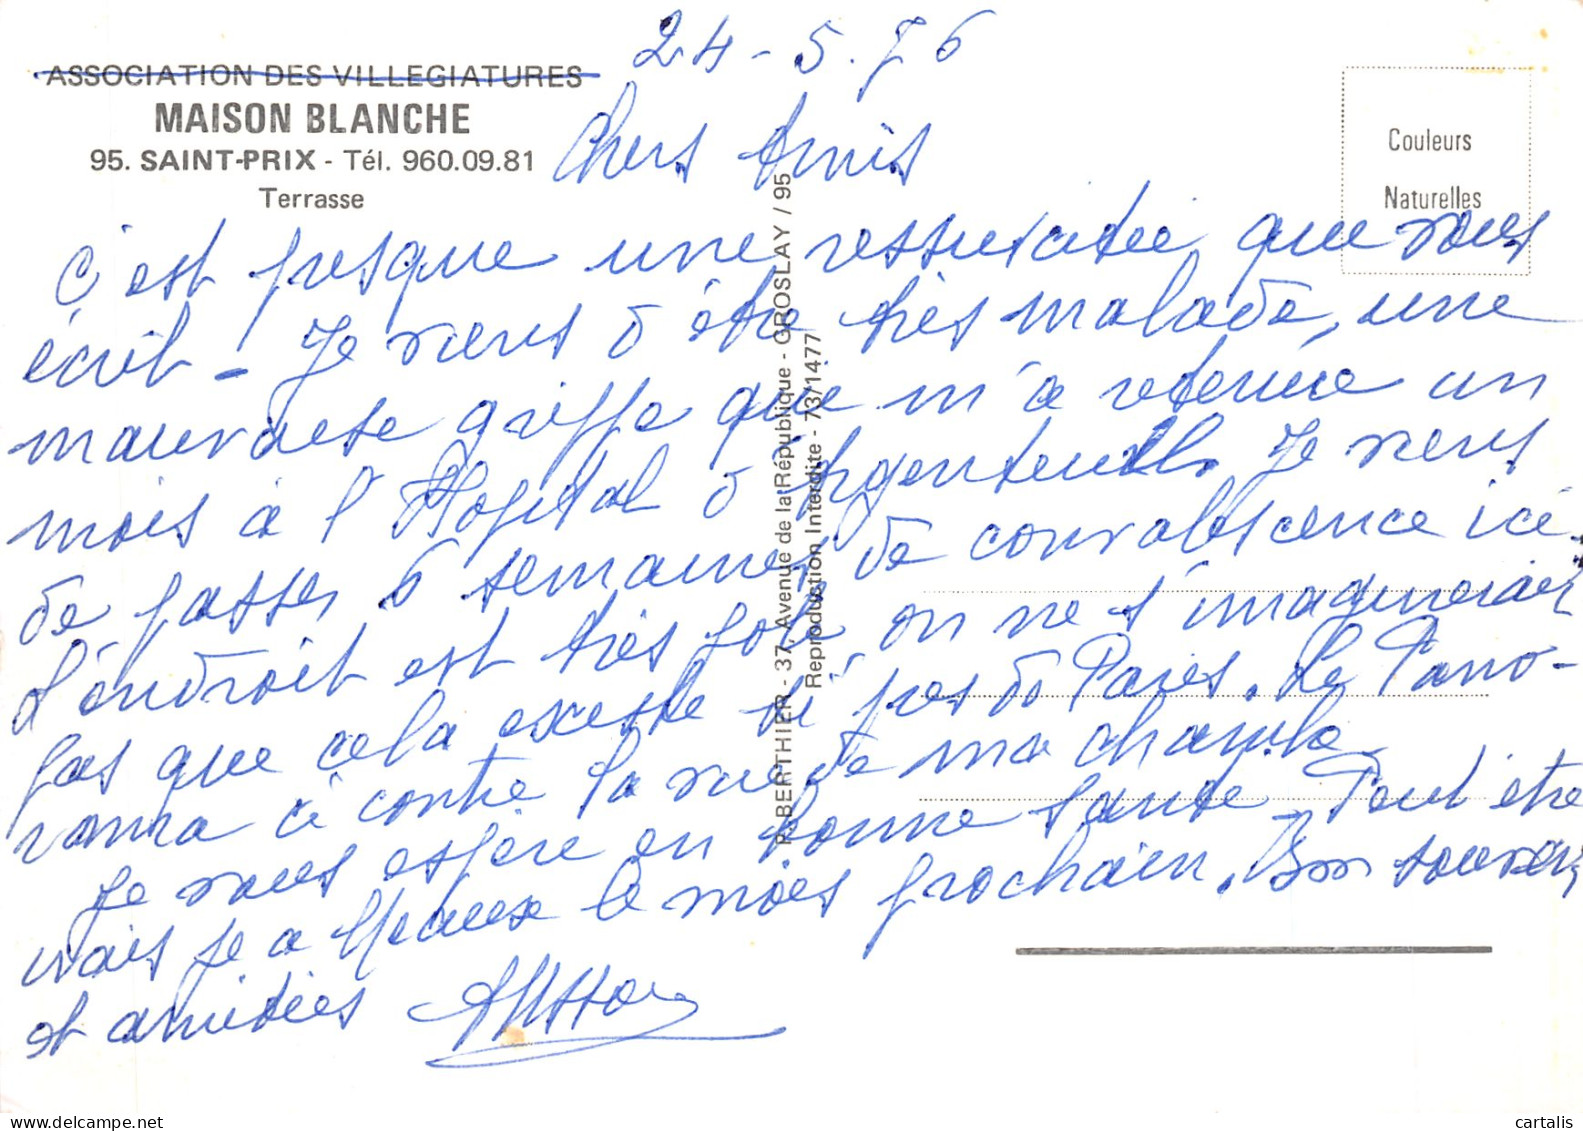 24-5.76
ASSOCIATION DES VILLEGIATURES
MAISON BLANCHE
95. SAINT-PRIX - Tél. 960.09.81
Terrasse
Chers Amis
Couleurs
Naturelles
C'est presque une ressucitée que vous
écrit - Je viens d'être très malade, une
mauvaise grippe que m'a retenue un
mois à l'Hopital d'Argenteuil. Je viens
de passer 6 semaines de convalescence ici.
L'endroit est très joli, on ne s'imaginerait
pas que cela existe si près de Paris. Le Pano-
rama ci contre la vue de ma chambre
Je vous espère en bonne santé. Peut être
irais je a Meaux le mois prochain. Bon souvenir
et amitiés
P. BERTHIER - 37, Avenue de la République - GROSLAY / 95
Reproduction Interdite - 73/1477
cartalis
www.delcampe.net